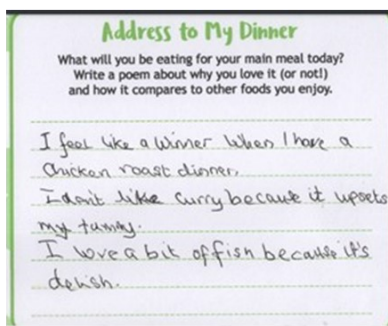 Address to My Dinner
What will you be eating for your main meal today?
Write a poem about why you love it (or not!)
and how it compares to other foods you enjoy.
I feel like a winner when I have a
chicken roast dinner.
I don't like curry because it upsets
my tummy.
I love a bit of fish because it's
delish.